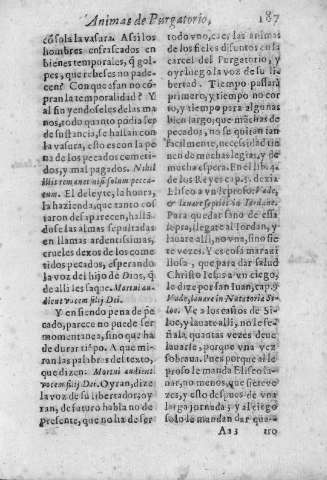 Animas de Purgatorio, 187
cō sola la vasura. Assi los
hombres enfrascados en
bienes temporales, q̃ gol-
pes, que rebeses no pade-
cen? Con que afan no cō-
pran la temporalidad? Y
al fin yendoseles de las ma
nos, todo quanto podia ser
de sustancia, se hallan con
la vasura, esto es con la pe
na de los pecados cometi-
dos, y mal pagados. Nihil
illis remanet nisi solum pecca-
tum. El deleyte, la honra,
la hazienda, que tanto cos
taron desaparecen, hallā-
dose las almas sepultadas
en llamas ardentissimas,
crueles dexos de los come
tidos pecados, esperando
la voz del hijo de Dios, q̃
de alli les saque. Mortui au-
dient vocem filij Dei.
Y en siendo pena de pe-
cado, parece no puede ser
momentanea, sino que ha
de durar tiẽpo. A que mi-
ran las palabras del texto,
que dizen: Mortui audient
vocem filij Dei. Oyran, dize
la voz de su libertador, o y-
ran, de futuro habla no de
presente, que no ha de ser
todo vno, cae, las animas
de los fieles difuntos en la
carcel del Purgatorio, y
oyr luego la voz de su li-
bertad. Tiempo passarà
primero, y tiempo no cor
to, y tiempo para algunas
bien largo, que mãchas de
pecados, no se quitan tan
facilmente, necessidad tie
nen de muchas legias, y de
mucha espera. En el lib. 4.
de los Reyes cap. 5. dezia
Eliseo a vn leproso: Vade,
& lauare septies in Iordane.
Para quedar sano de essa
lepra, llegate al Iordan, y
lauate alli, no vna, sino sie
te vezes. Y es cosa maraui
llosa, que para dar salud
Christo Iesus a vn ciego,
le dize por san Iuan, cap. 9
Vade, lauare in Natatoria Si-
loe. Ve a los caños de Si-
loe, y lauate alli, no le señ a
la, quantas vezes deue
lauarse, porque vna vez
sobraua. Pues porque al le
proso le manda Eliseo la-
nar, no menos, que siete ve
zes, y esso despues de vna
larga jornada; y al ciego
solo le mandan dar qua-
Aa 3 tro